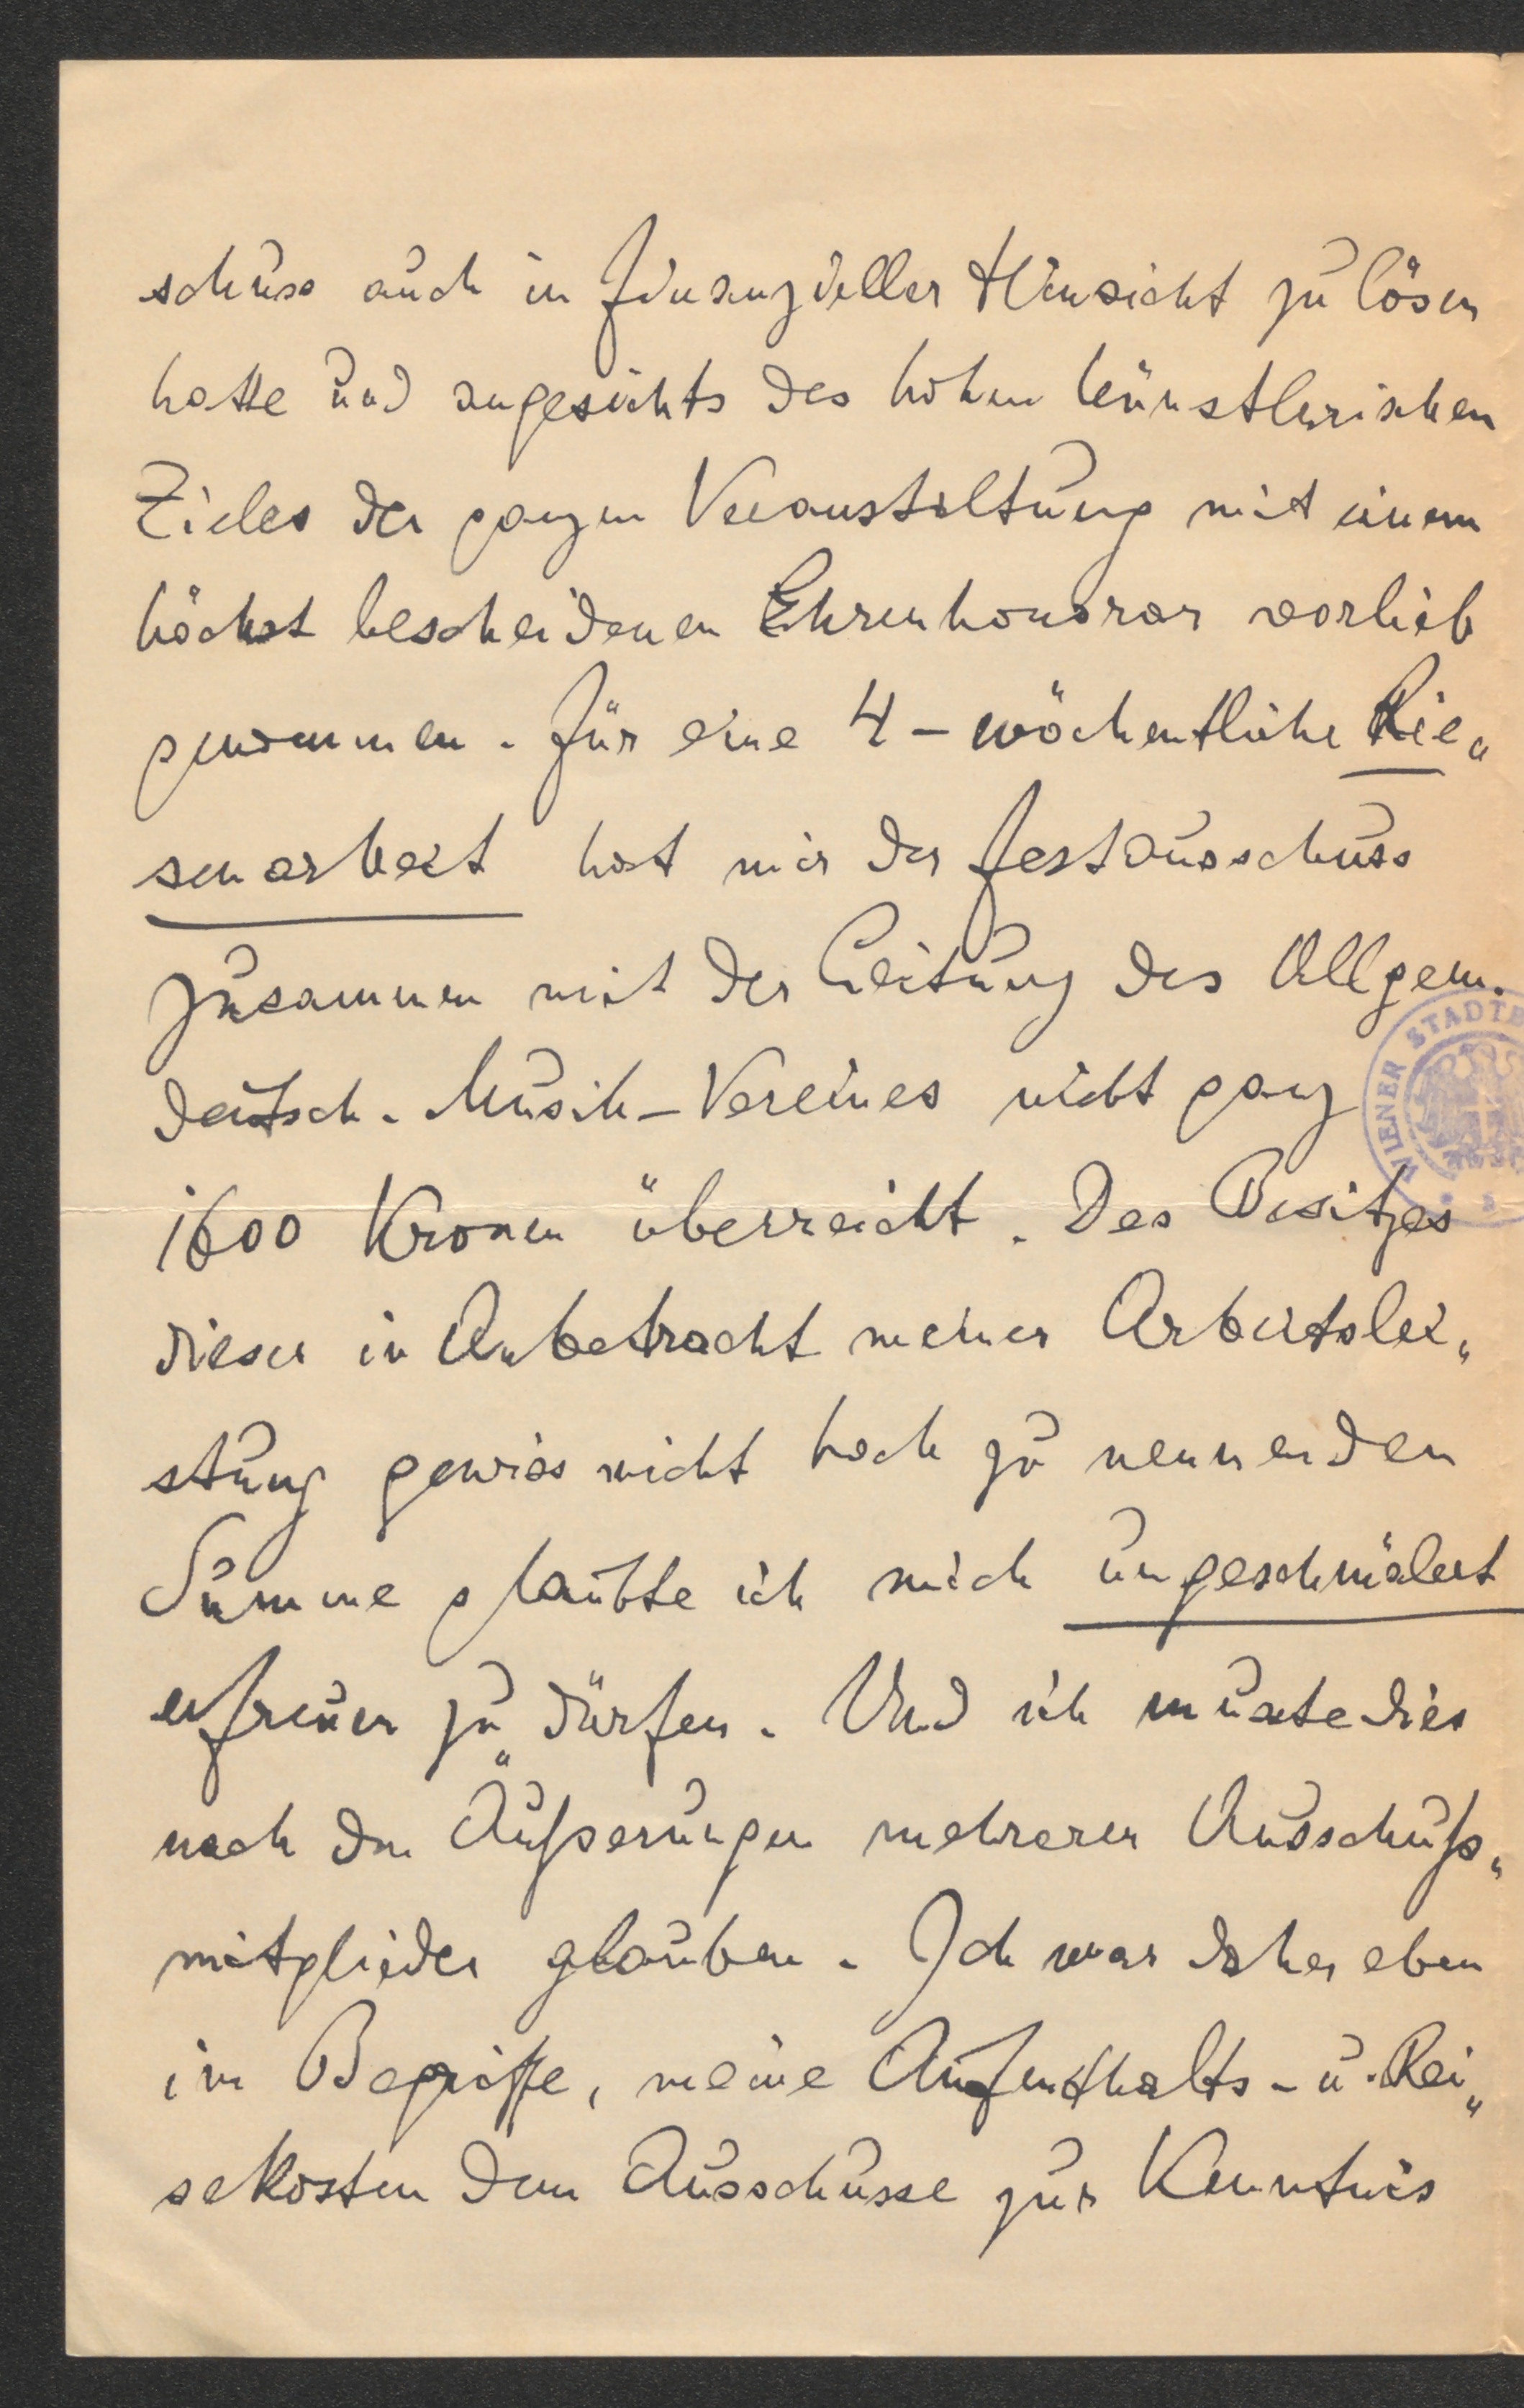 schuss auch in finanzieller Hinsicht zu lösen
hatte und angesichts des hohen künstlerischen
Zieles der ganzen Veranstaltung mit einem
höchst bescheidenen Ehrenhonorar vorlieb
genommen. Für eine 4-wöchentliche Rie„
senarbeit hat mir der Festausschuss
zusammen mit der Leitung des Allgem.
deutsch. Musik-Vereines nicht ganz
WIENER STADTB
1600 Kronen überreicht. Des Besitzes
dieser in Anbetracht meiner Arbeitslei„
stung gewiss nicht hoch zu nennenden
Summe glaubte ich mich ungeschmälert
erfreuen zu dürfen. Und ich musste dies
nach den Äußerungen mehrerer Ausschuß„
mitglieder glauben. Ich war daher eben
im Begriffe, meine Aufenthalts- u. Rei„
sekosten dem Ausschusse zur Kenntnis